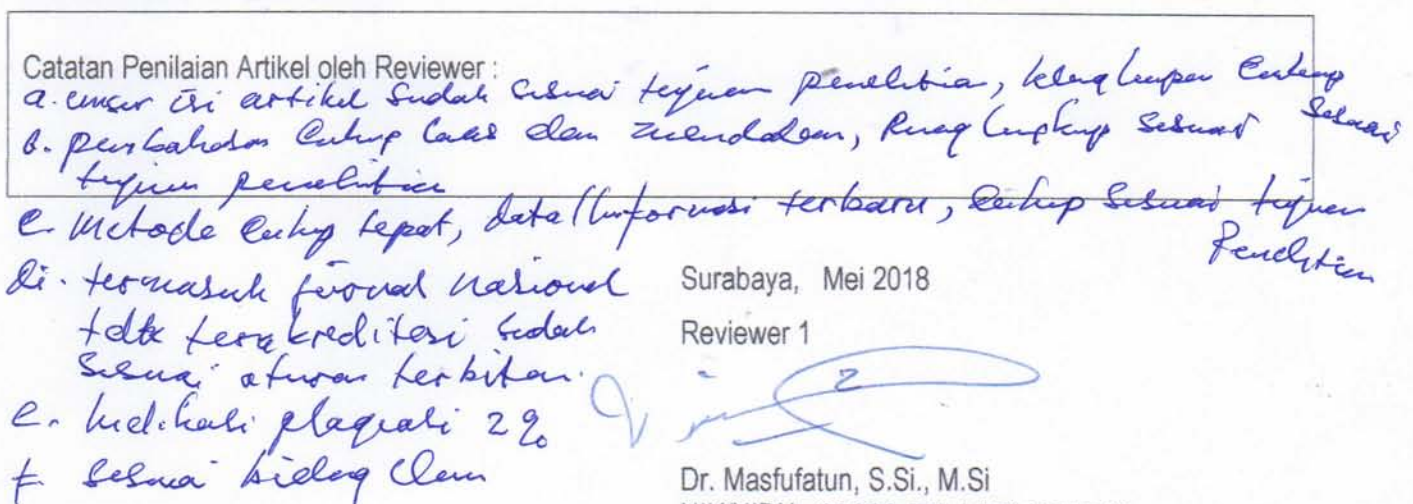 Catatan Penilaian Artikel oleh Reviewer :
a. unsur isi artikel sudah sesuai tujuan penelitia, kelengkapan cukup sesuai
b. pembahasan cukup luas dan mendalam, Ruang lingkup sesuai
tujuan penelitian
c. Metode cukup tepat, data/informasi terbaru, cukup sesuai tujuan
Penelitian
di. termasuk jurnal nasional
tdk terakreditasi sudah
sesuai aturan terbitan.
e. Indikasi plagiasi 2%
f. sesuai bidang
Surabaya, Mei 2018
Reviewer 1
Dr. Masfufatun, S.Si., M.Si